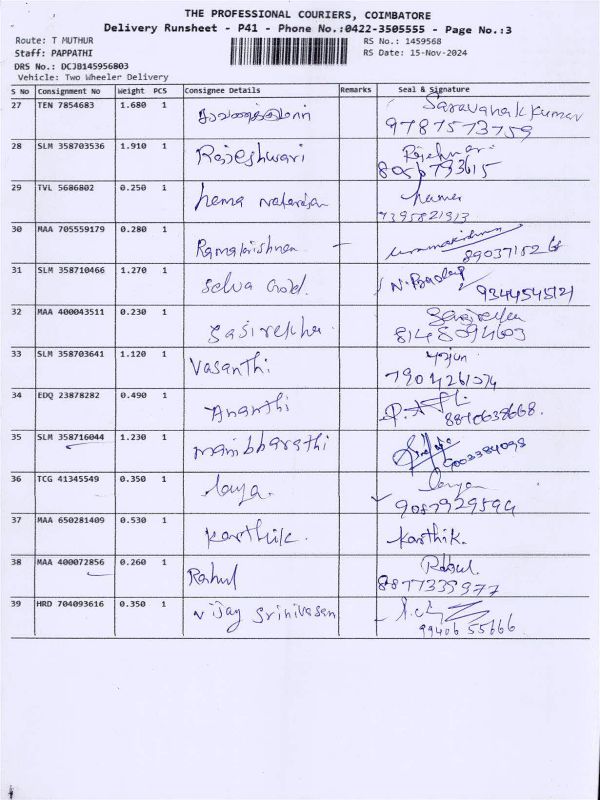 THE PROFESSIONAL COURIERS, COIMBATORE
Delivery Runsheet - P41 - Phone No.:0422-3505555 - Page No.:3
Route: T MUTHUR
RS No.: 1459568
Staff: PAPPATHI
RS Date: 15-Nov-2024
DRS No.: DCJB145956803
Vehicle: Two Wheeler Delivery
S No Consignment No Weight PCS Consignee Details Remarks Seal & Signature
27 TEN 7854683 1.680 1 சரவணக்குமார் Saravanakkumar
9787573759
28 SLM 358703536 1.910 1 Rajeshwari Rajeshwari
8056793615
29 TVL 5686802 0.250 1 hema natarajan hema
7395821913
30 MAA 705559179 0.280 1 Ramakrishnan -
31 SLM 358710466 1.270 1 Selva Gold.
9344545121
32 MAA 400043511 0.230 1 Sasirekha Sasirekha
8148094603
33 SLM 358703641 1.120 1 Vasanthi
7904261074
34 EDQ 23878282 0.490 1 Ananthi
8870638668.
35 SLM 358716044 1.230 1 manibharathi
9003384098
36 TCG 41345549 0.350 1
9087929594
37 MAA 650281409 0.530 1 Karthik. Karthik.
38 MAA 400072856 0.260 1 Rahul Rahul.
8877339977
39 HRD 704093616 0.350 1 Vijay Srinivasan
99406 55666.